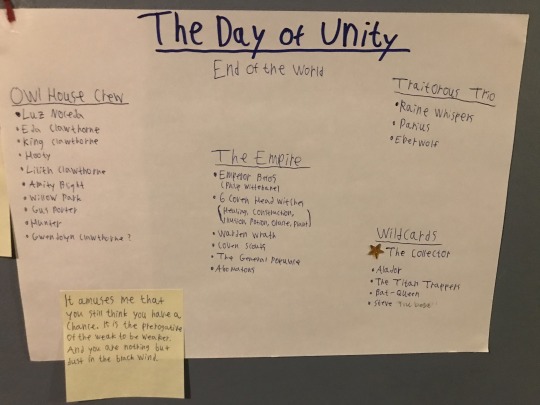 The Day of Unity
End of the World
Owl House Crew
• Luz Noceda
• Eda Clawthorne
• King Clawthorne
• Hooty
• Lilith Clawthorne
• Amity Blight
• Willow Park
• Gus Porter
• Hunter
• Gwendolyn Clawthorne?
The Empire
• Emperor Belos
(Philip Wittebane)
• 6 Coven Head Witches
(Healing, Construction,
Illusion, Potion, Oracle, Plant)
• Warden Wrath
• Coven Scouts
• The General Populace
• Abomatons
Traitorous Trio
• Raine Whispers
• Darius
• Eberwolf
Wildcards
The Collector
• Alador
• The Titan Trappers
• Bat-Queen
• Steve
It amuses me that
you still think you have a
chance. It is the prerogative
of the weak to be weaker.
And you are nothing but
dust in the black wind.